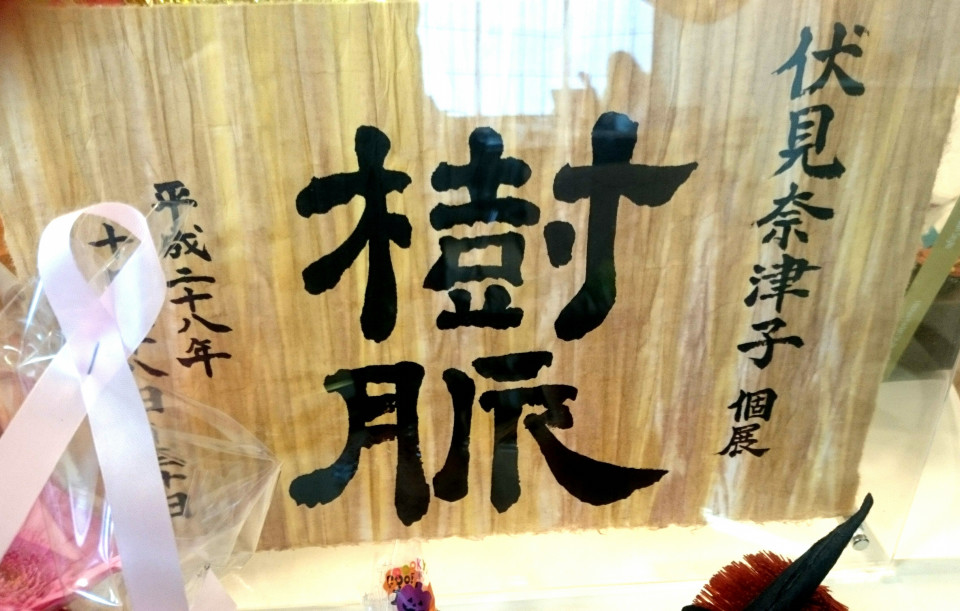 伏見奈津子 個展
樹脈
平成二十八年